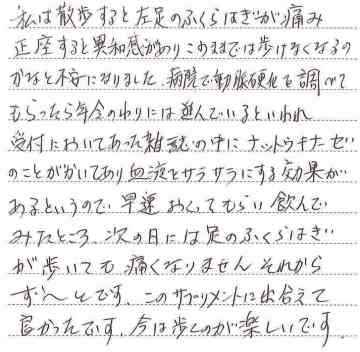 私は散歩すると左足のふくらはぎが痛み
正座すると異和感がありこのままでは歩けなくなるの
かなと不安になりました。病院で動脈硬化を調べて
もらったら年令のわりには進んでいるといわれ
受付においてあった雑誌の中にナットウキナーゼ
のことが書いてあり血液をサラサラにする効果が
あるというので、早速おくってもらい飲んで
みたところ、次の日には足のふくらはぎ
が歩いても痛くなりません それから
ず〜とです、このサプリメントに出合えて
良かったです、今は歩くのが楽しいです。